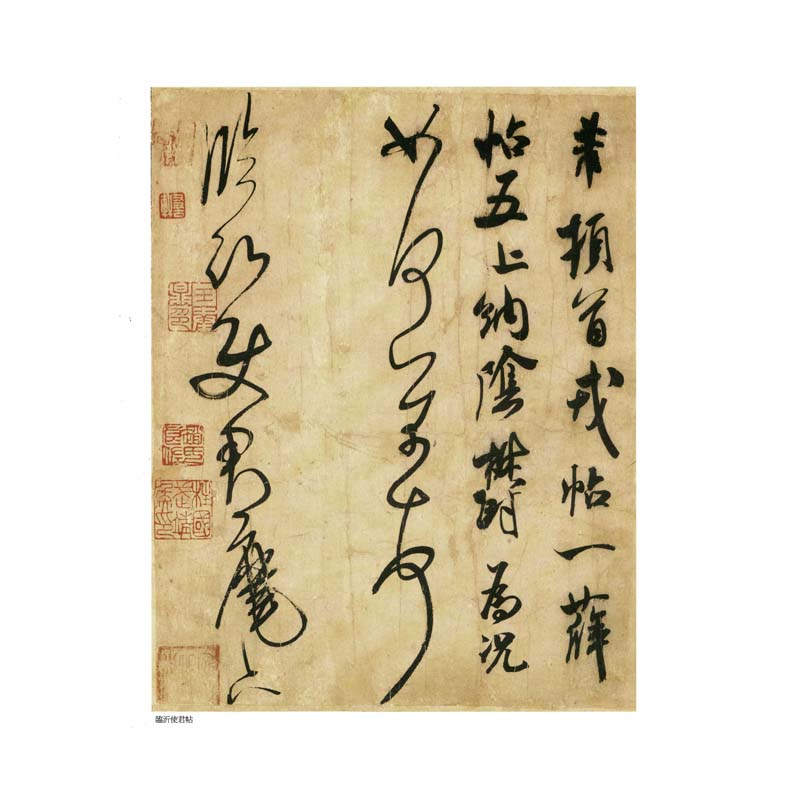 芾頓首戎帖一薛
帖五上納陰欝為況
如何芾頓首
臨沂使君麾下
臨沂使君帖